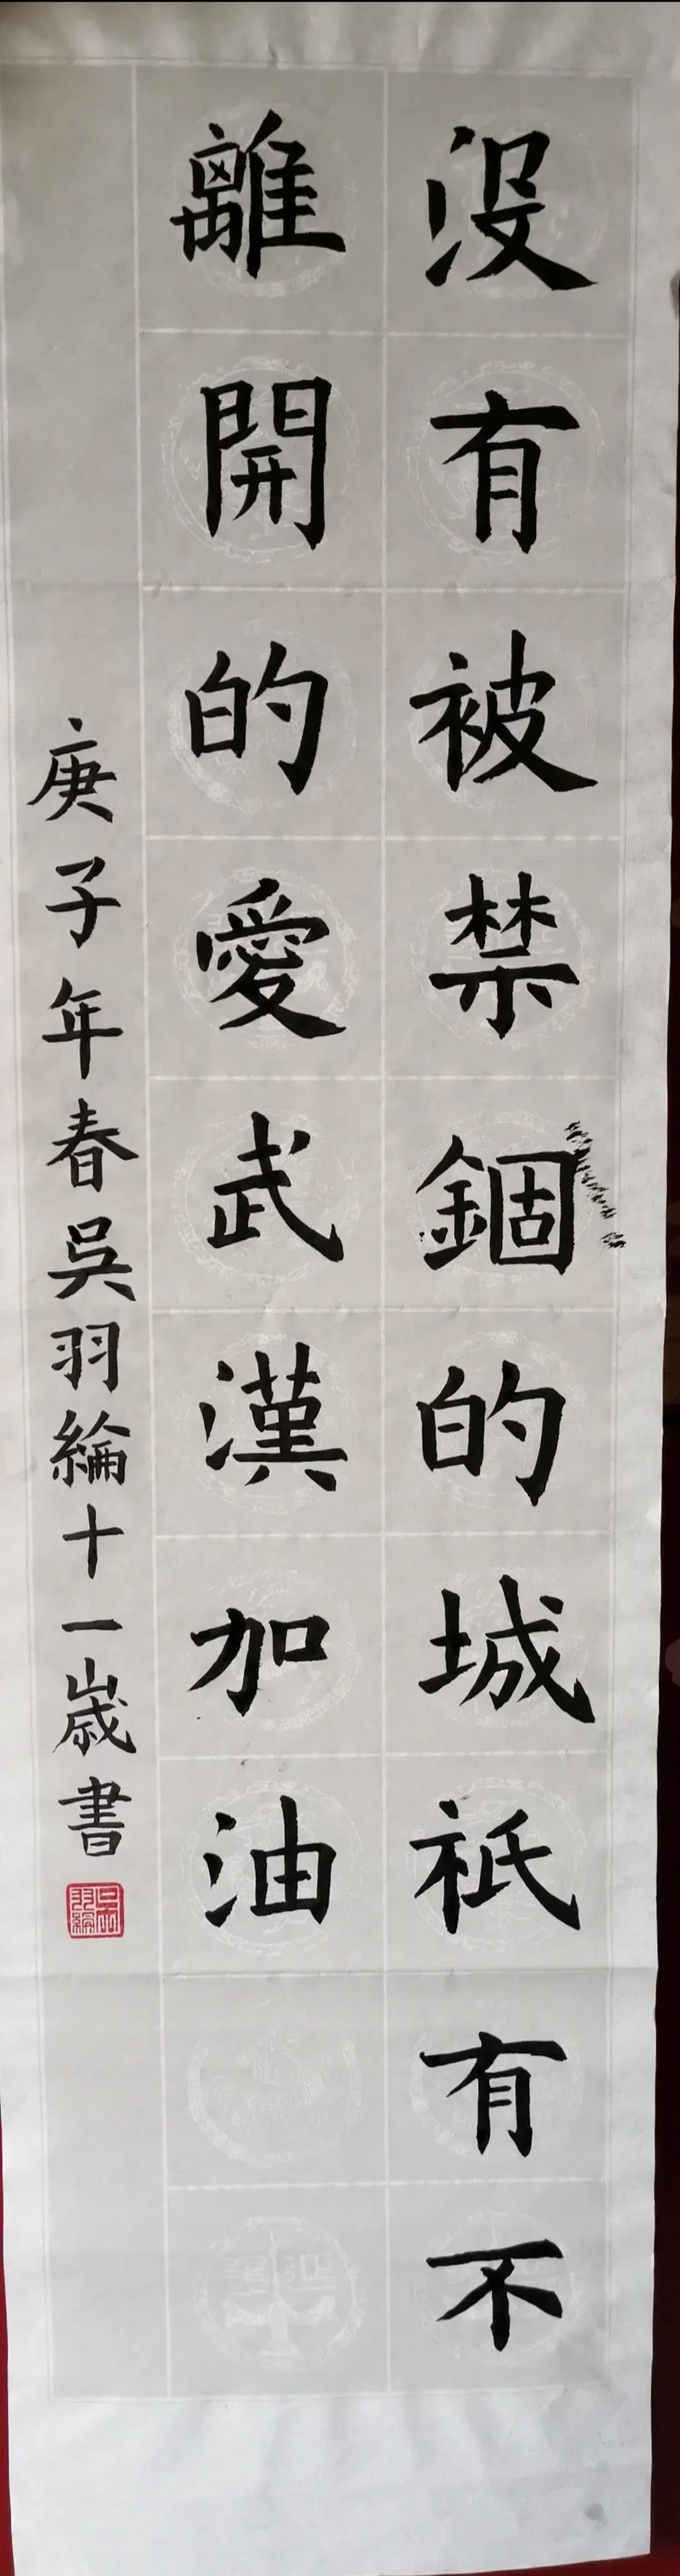 没有被禁錮的城祇有不
離開的愛武漢加油
庚子年春吳羽綸十一歲書
吳羽綸